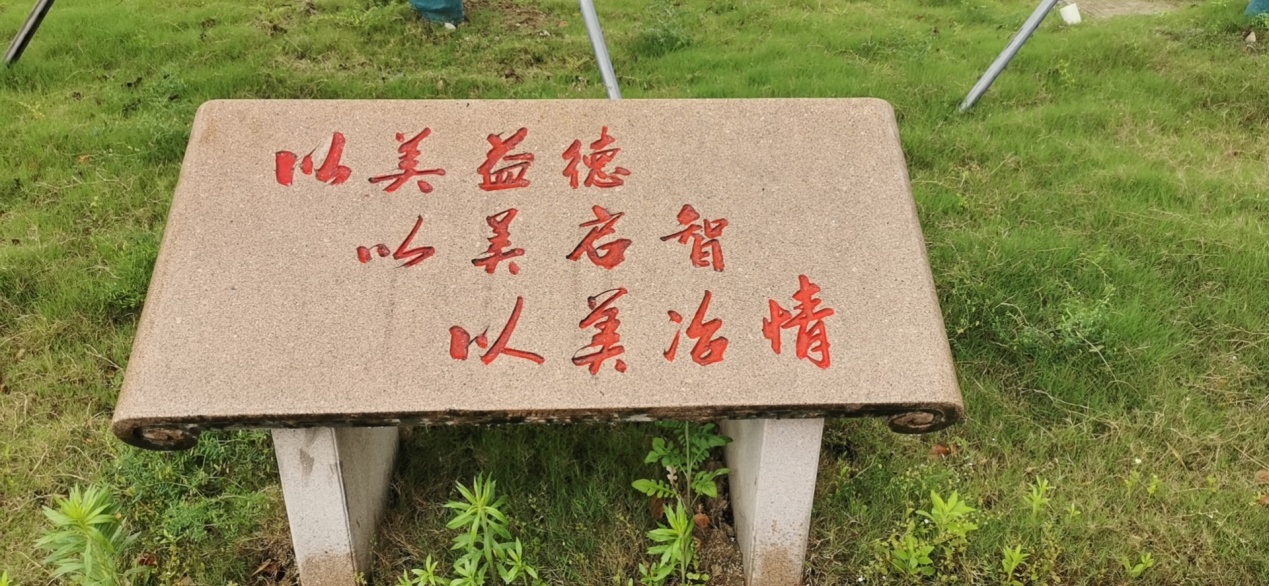 以美益德
以美启智
以美冶情